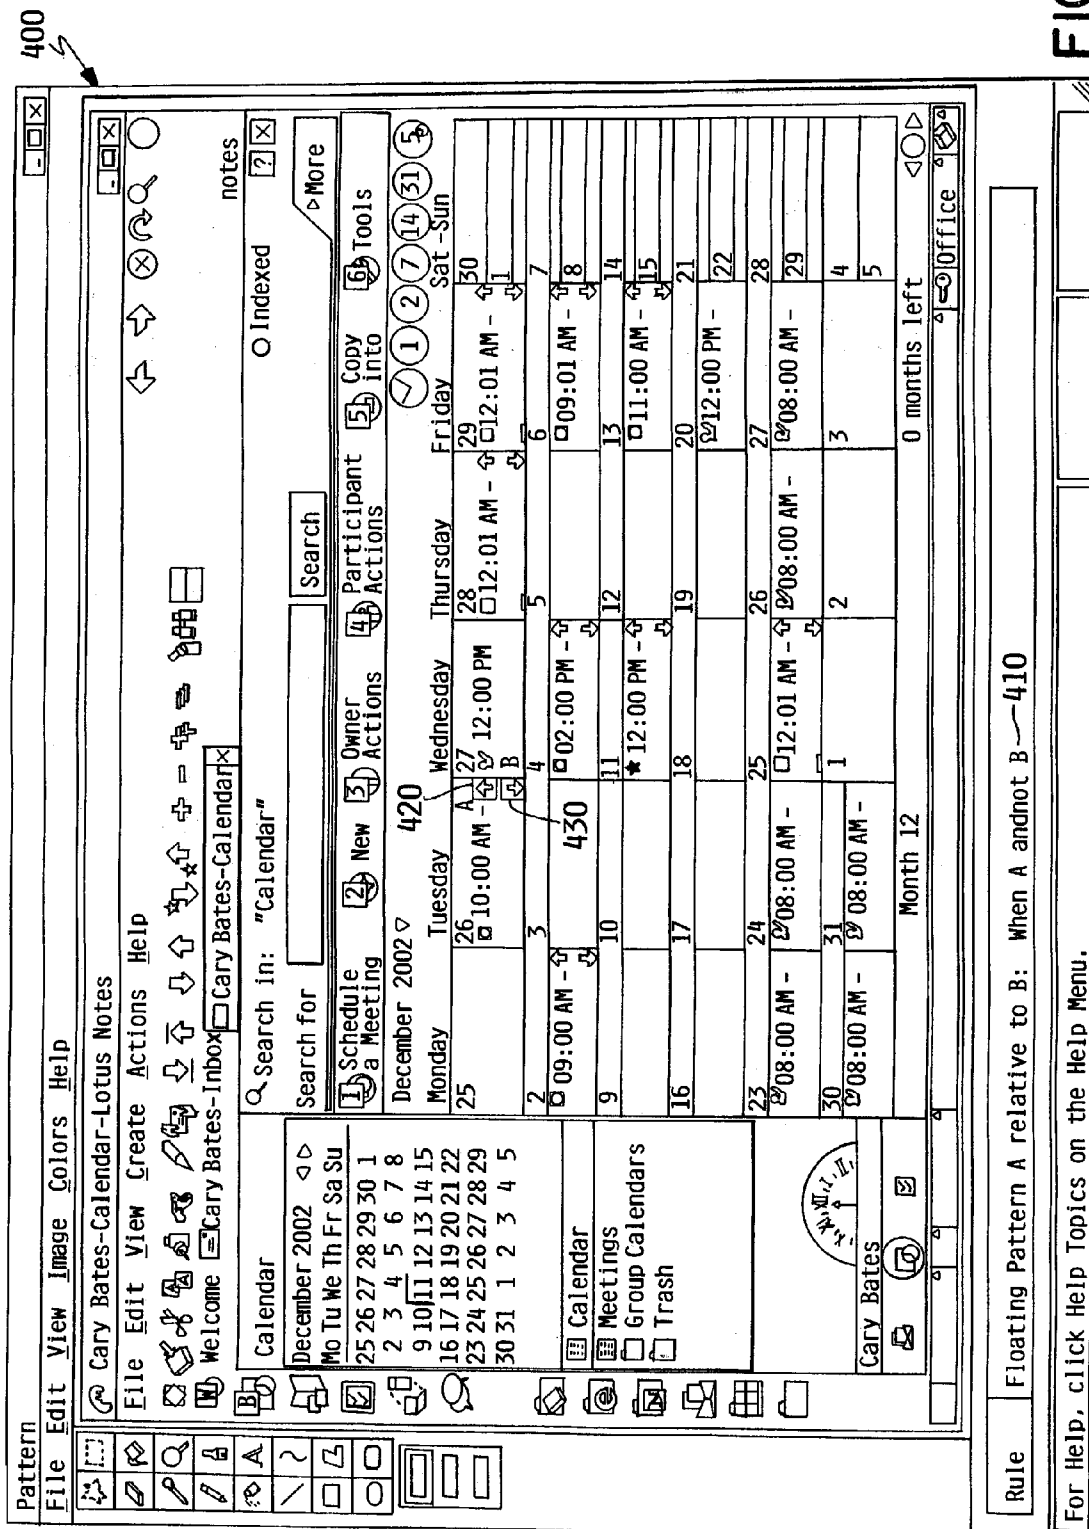 400
FIG
Pattern
File Edit View Image Colors Help
Cary Bates-Calendar-Lotus Notes
File Edit View Create Actions Help
Welcome Cary Bates-Inbox Cary Bates-Calendar
notes
Calendar
December 2002
Mo Tu We Th Fr Sa Su
25 26 27 28 29 30 1
2 3 4 5 6 7 8
9 10 11 12 13 14 15
16 17 18 19 20 21 22
23 24 25 26 27 28 29
30 31 1 2 3 4 5
Calendar
Meetings
Group Calendars
Trash
Cary Bates
Search in: "Calendar"
Indexed
Search for
Search
More
1 Schedule a Meeting
2 New
3 Owner Actions
4 Participant Actions
5 Copy into
6 Tools
December 2002
1 2 7 14 31
Monday Tuesday Wednesday Thursday Friday Sat-Sun
420
430
25
26 10:00 AM - A
B
27 12:00 PM
28 12:01 AM -
29 12:01 AM -
30
1
2 09:00 AM -
3
4 02:00 PM -
5
6 09:01 AM -
7
8
9
10
11 12:00 PM -
12
13 11:00 AM -
14
15
16
17
18
19
20 12:00 PM -
21
22
23 08:00 AM -
24 08:00 AM -
25 12:01 AM -
26 08:00 AM -
27 08:00 AM -
28
29
30 08:00 AM -
31 08:00 AM -
1
2
3
4
5
Month 12
0 months left
Office
Rule Floating Pattern A relative to B: When A andnot B 410
For Help, click Help Topics on the Help Menu.